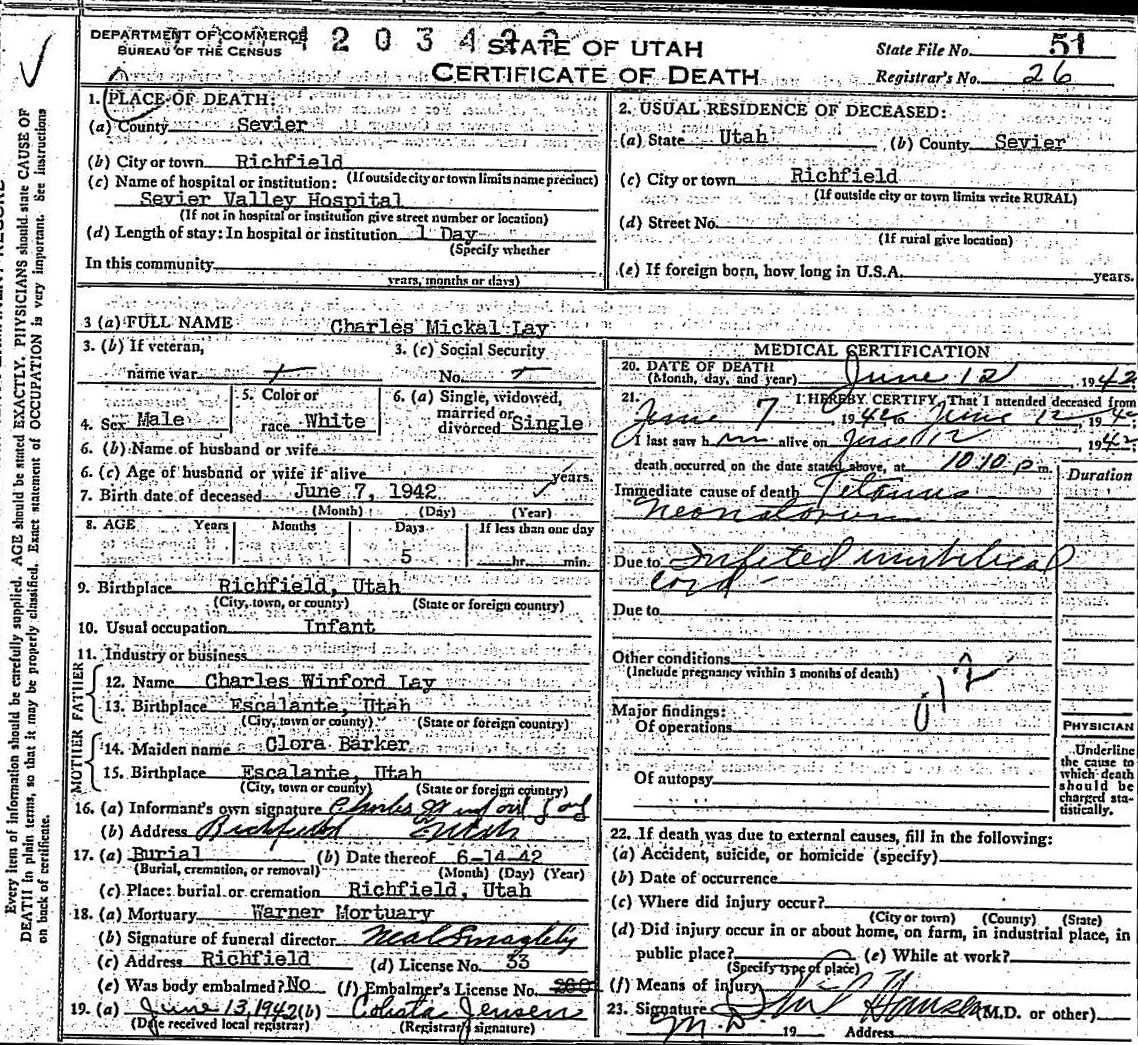 DEPARTMENT OF COMMERCE
BUREAU OF THE CENSUS
STATE OF UTAH
CERTIFICATE OF DEATH
State File No. 51
Registrar's No. 26
1. PLACE OF DEATH:
(a) County Sevier
(b) City or town Richfield
(If outside city or town limits name precinct)
(c) Name of hospital or institution:
Sevier Valley Hospital
(If not in hospital or institution give street number or location)
(d) Length of stay: In hospital or institution 1 Day
(Specify whether
In this community
years, months or days)
2. USUAL RESIDENCE OF DECEASED:
(a) State Utah (b) County Sevier
(c) City or town Richfield
(If outside city or town limits write RURAL)
(d) Street No.
(If rural give location)
(e) If foreign born, how long in U.S.A. years.
3 (a) FULL NAME Charles Mickal Lay
3. (b) If veteran,
name war
3. (c) Social Security
No.
4. Sex Male
5. Color or
race White
6. (a) Single, widowed,
married or
divorced Single
6. (b) Name of husband or wife
6. (c) Age of husband or wife if alive years.
7. Birth date of deceased June 7, 1942
(Month) (Day) (Year)
8. AGE Years Months Days If less than one day
5 hr. min.
9. Birthplace Richfield, Utah
(City, town, or county) (State or foreign country)
10. Usual occupation Infant
11. Industry or business
FATHER
12. Name Charles Winford Lay
13. Birthplace Escalante, Utah
(City, town or county) (State or foreign country)
MOTHER
14. Maiden name Clora Barker
15. Birthplace Escalante, Utah
(City, town or county) (State or foreign country)
16. (a) Informant's own signature Charles Winford Lay
(b) Address Richfield Utah
17. (a) Burial (b) Date thereof 6-14-42
(Burial, cremation, or removal) (Month) (Day) (Year)
(c) Place: burial or cremation Richfield, Utah
18. (a) Mortuary Warner Mortuary
(b) Signature of funeral director Neal S Magleby
(c) Address Richfield (d) License No. 33
(e) Was body embalmed? No (f) Embalmer's License No.
19. (a) June 13, 1942 (b) Colista Jensen
(Date received local registrar) (Registrar's signature)
MEDICAL CERTIFICATION
20. DATE OF DEATH
(Month, day, and year) June 12, 1942
21. I HEREBY CERTIFY, That I attended deceased from
June 7, 1942 to June 12, 1942
I last saw him alive on June 12 1942
death occurred on the date stated above, at 10:10 p m.
Duration
Immediate cause of death Tetanus
Neonatorum
Due to Infeted umbilical
cord
Due to
Other conditions
(Include pregnancy within 3 months of death)
Major findings:
Of operations
Of autopsy
PHYSICIAN
Underline
the cause to
which death
should be
charged sta-
tistically.
22. If death was due to external causes, fill in the following:
(a) Accident, suicide, or homicide (specify)
(b) Date of occurrence
(c) Where did injury occur?
(City or town) (County) (State)
(d) Did injury occur in or about home, on farm, in industrial place, in
public place? (e) While at work?
(Specify type of place)
(f) Means of injury
23. Signature Hansen (M.D. or other)
M.D. 19 Address
Every item of information should be carefully supplied. AGE should be stated EXACTLY. PHYSICIANS should state CAUSE OF
DEATH in plain terms, so that it may be properly classified. Exact statement of OCCUPATION is very important. See instructions
on back of certificate.